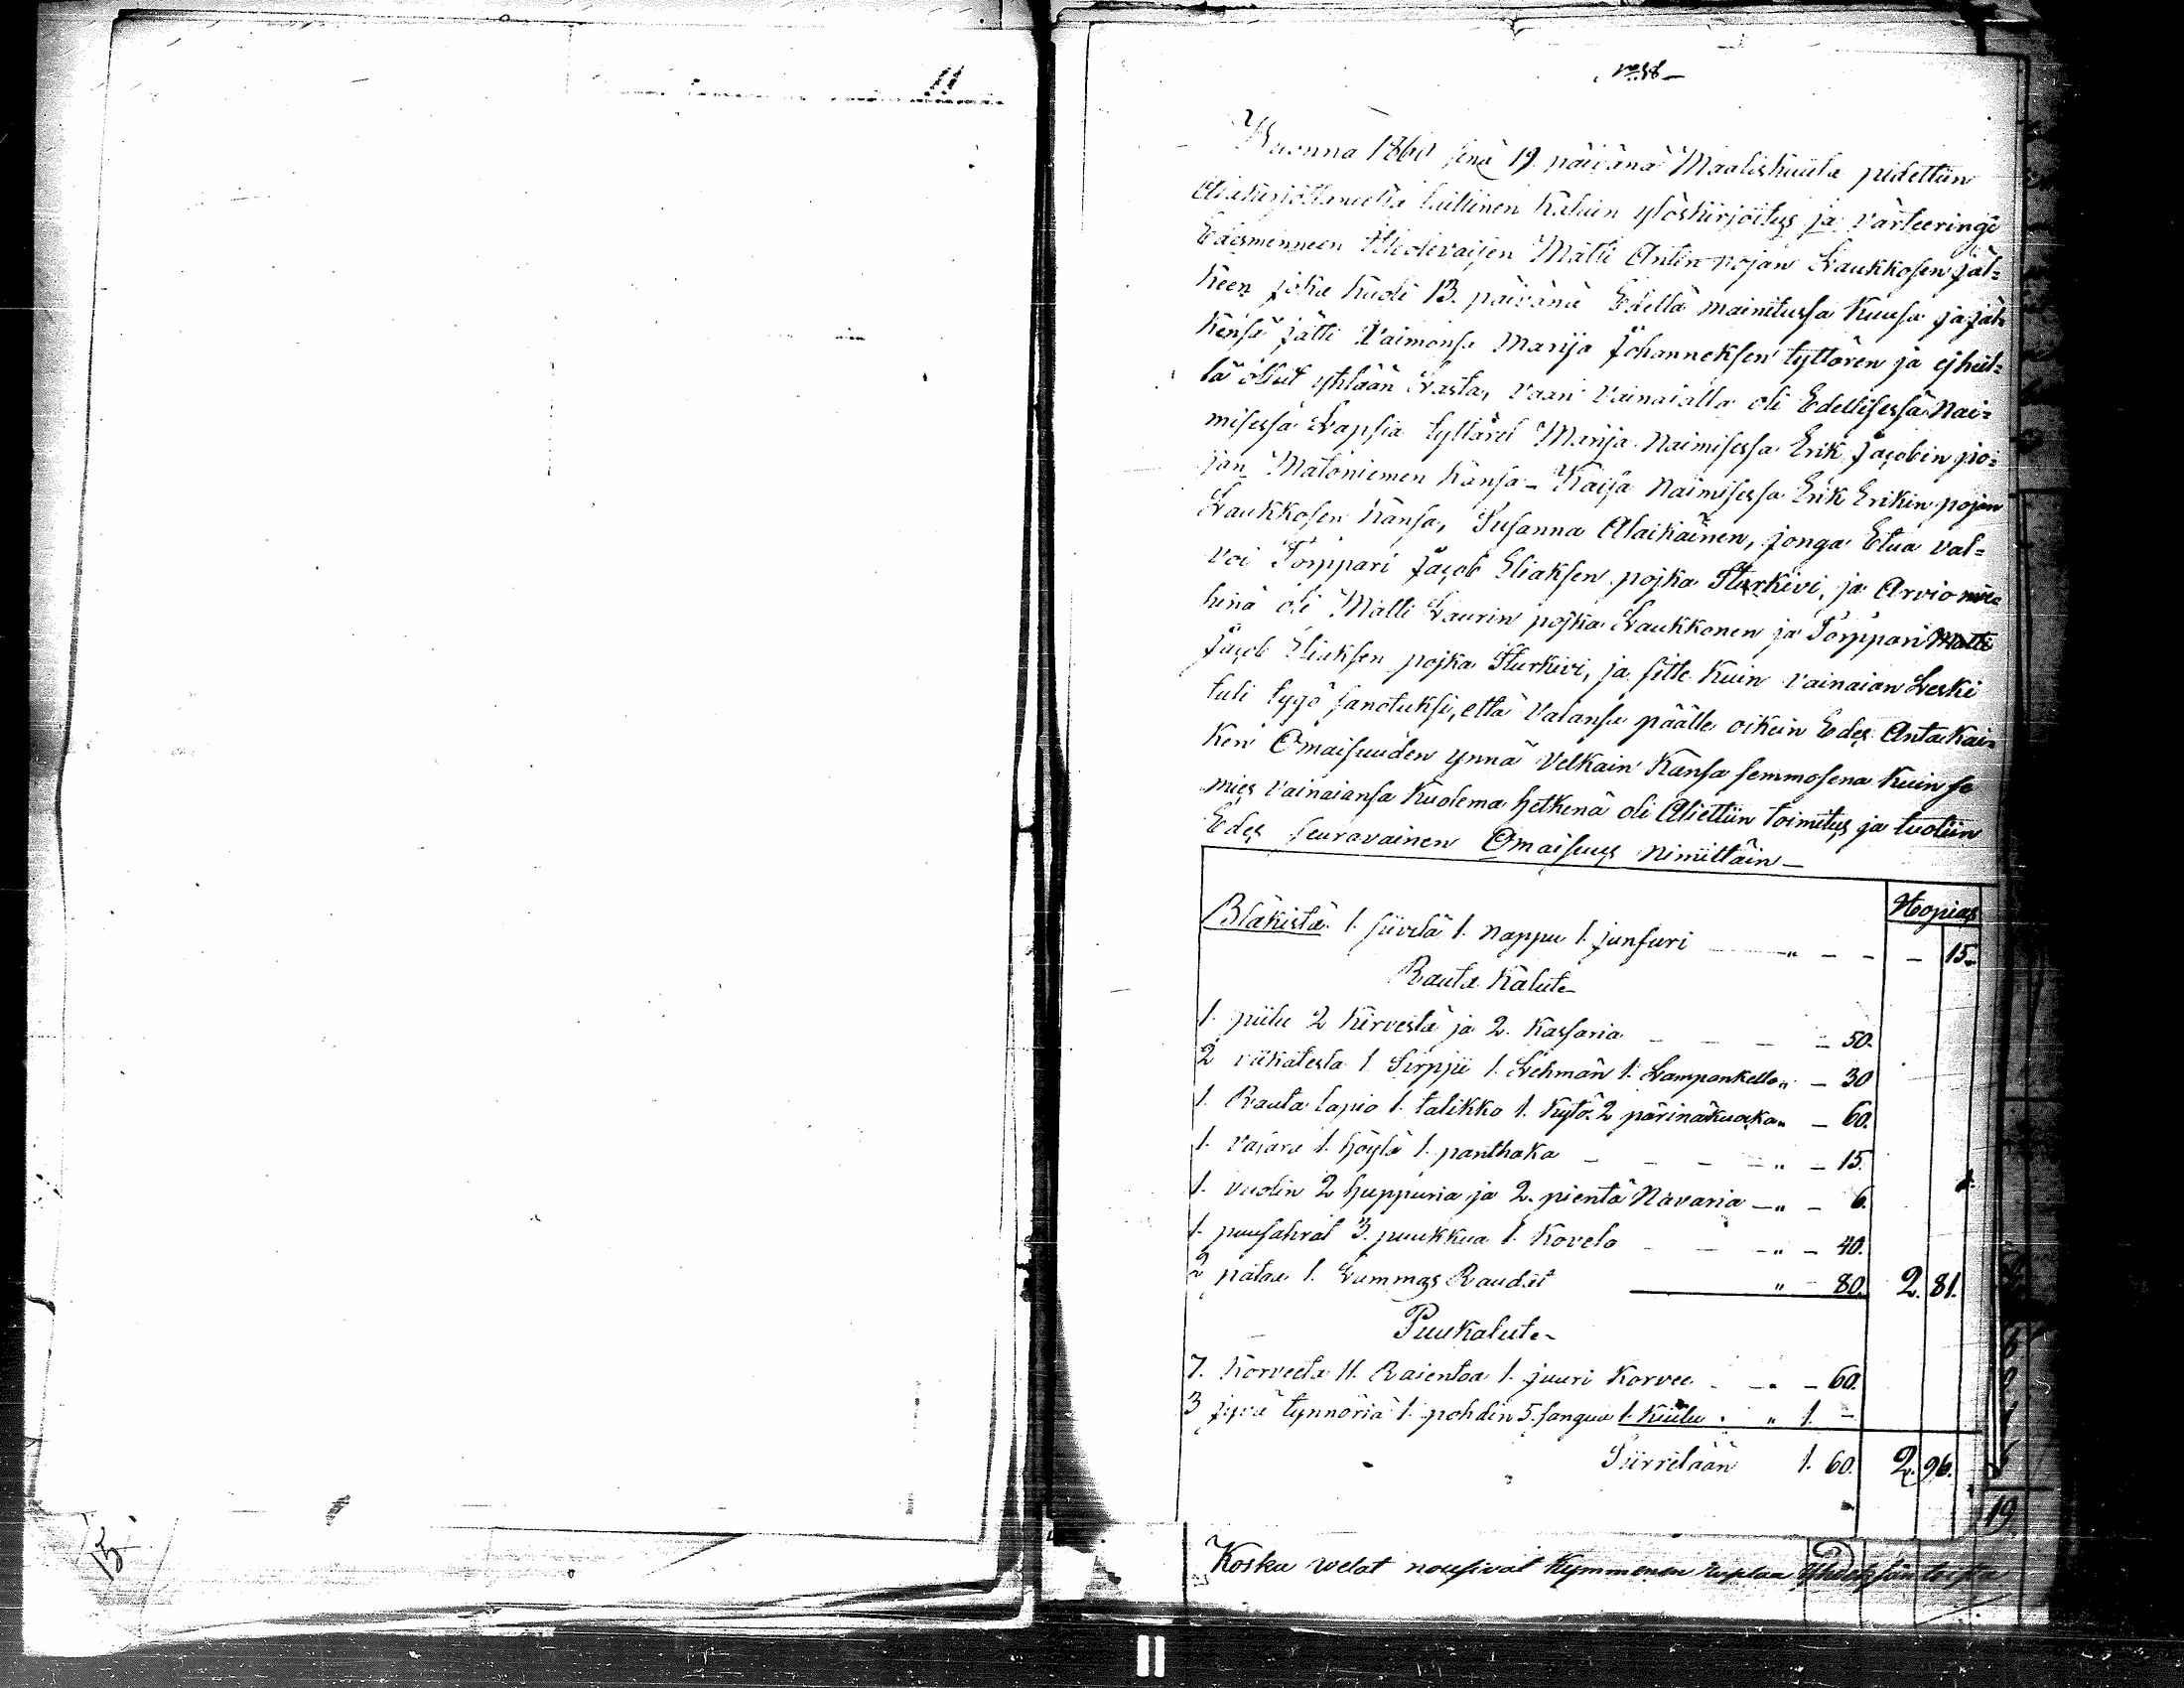 11
No 58
Vuonna 1860 sinä 19 päivänä Maaliskuuta pidettiin
laillinen kaluin ylöskirjoitus ja värteeringi
Edesmenneen Itledevaisen Matti Antin pojan Laukkosen jäl=
keen joka kuoli 13. päivänä Edellä mainitussa kuusa ja jäl=
kensä jätti Vaimonsa Marija Johanneksen tyttären ja ej heil=
lä ollut yhtään Lasta, vaan vainaialla oli Edellisessä Nai=
misessa Lapsia tyttäret Marija Naimisessa Erik Jacobin po=
jan Matoniemen kansa – Kaisa Naimisessa Erik Erikin pojan
Laukkosen kansa, Susanna Alaikäinen, jonga Etua val=
voi Torppari Jacob Eliaksen pojka Sturkivi, ja Arvio mie=
hinä oli Matti Laurin pojka Laukkonen ja Torppari Matti
Jacob Eliaksen pojka Sturkivi, ja sitte kuin vainaian Leski
tuli tygö sanotuksi, että Valansa päälle oikein Edes Anta kai=
ken Omaisuuden ynnä Velkain kansa semmosena kuin se
mies vainaiansa kuolema hetkenä oli Aliettiin toimitus ja tuotiin
Edes seuravainen Omaisuus nimittäin –
Hopias
Bläkistä 1. siivilä 1. nappu 1. junfuri " – – – 15.
Rauta kalute
1. piilu 2 kirvestä ja 2. kassaria – – – – 50.
2 viikatesta 1. Sirppi 1. Lehmän 1. Lampankello " – 30
1. Rauta lapio 1. talikko 1. kytö. 2 perinäkuokka " – 60.
1. Vasara 1. höylä 1. panthaka – – – " – 15.
1. vuolin 2 huppuria ja 2. pientä Navaria – " – 6.
1. puusahrat 3. puukkua 1. Kovelo – – " – 40.
2 pataa 1. Lummas Raudat " – 80. 2. 81.
Puukalute
7. Korveeta 11. Raientoa 1. juuri Korvee – " – 60.
3 jyvä tynnöriä 1. pohdin 5. sangua 1. kiulu " 1. –
Siirretään 1. 60. 2. 96.
19
Koska welat nousivat kymmenen ruplaa
15
11